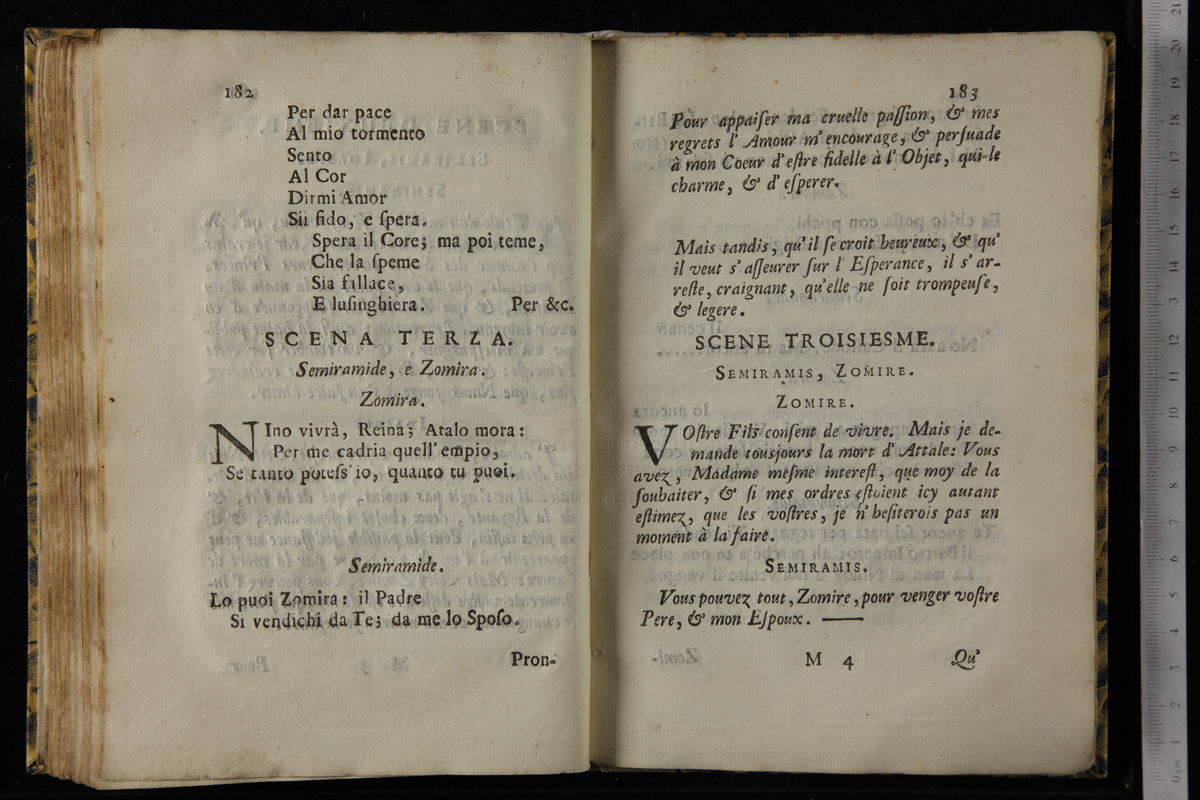 182
Per dar pace
Al mio tormento
Sento
Al Cor
Dirmi Amor
Sii fido, e ſpera.
Spera il Core; ma poi teme,
Che la ſpeme
Sia fallace,
E luſinghiera. Per &c.
SCENA TERZA.
Semiramide, e Zomira.
Zomira.
NIno vivrà, Reina; Atalo mora:
Per me cadria quell' empio,
Se tanto poteſs' io, quanto tu puoi.
Semiramide.
Lo puoi Zomira: il Padre
Si vendichi da Te; da me lo Spoſo.
Pron-
183
Pour appaiſer ma cruelle paſſion, & mes
regrets l' Amour m' encourage, & perſuade
à mon Coeur d' eſtre fidelle à l' Objet, qui-le
charme, & d' eſperer.
Mais tandis, qu' il ſe croit heureux, & qu'
il veut s' aſſeurer ſur l' Eſperance, il s' ar-
reſte, craignant, qu' elle ne ſoit trompeuſe,
& legere.
SCENE TROISIESME.
SEMIRAMIS, ZOMIRE.
ZOMIRE.
VOſtre Fils conſent de vivre. Mais je de-
mande tousjours la mort d' Attale: Vous
avez, Madame meſme intereſt, que moy de la
ſouhaiter, & ſi mes ordres eſtoient icy autant
eſtimez, que les voſtres, je n' heſiterois pas un
moment à la faire.
SEMIRAMIS.
Vous pouvez tout, Zomire, pour venger voſtre
Pere, & mon Eſpoux. ——
M 4 Qu'